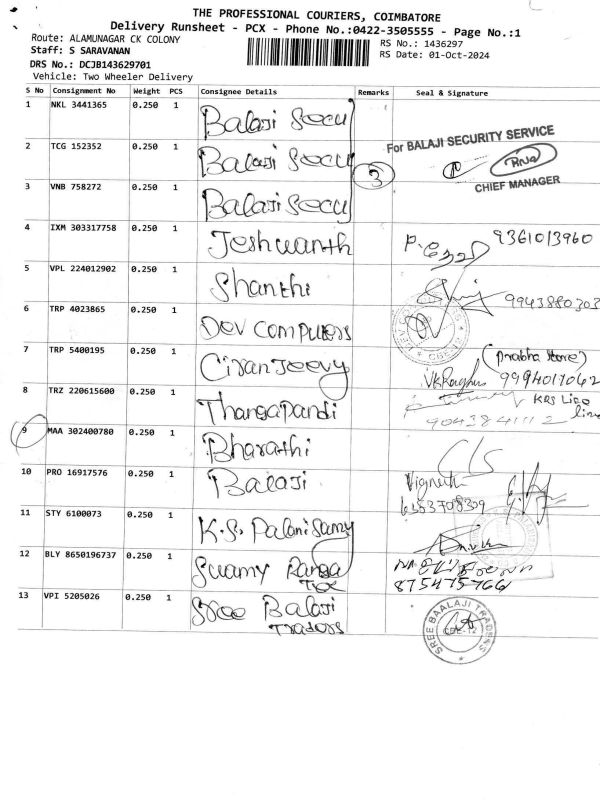 THE PROFESSIONAL COURIERS, COIMBATORE
Delivery Runsheet - PCX - Phone No.:0422-3505555 - Page No.:1
Route: ALAMUNAGAR CK COLONY
RS No.: 1436297
Staff: S SARAVANAN
RS Date: 01-Oct-2024
DRS No.: DCJB143629701
Vehicle: Two Wheeler Delivery
S No Consignment No Weight PCS Consignee Details Remarks Seal & Signature
1 NKL 3441365 0.250 1 Balaji Secu
2 TCG 152352 0.250 1 Balaji Secu 3 For BALAJI SECURITY SERVICE
3 VNB 758272 0.250 1 Balaji Secu CHIEF MANAGER
4 IXM 303317758 0.250 1 Joshwanth 9361013960
5 VPL 224012902 0.250 1 Shanthi 9943880303
6 TRP 4023865 0.250 1 Dev Computers
7 TRP 5400195 0.250 1 Ciranjeevy (Prabha Store) 9994017062
8 TRZ 220615600 0.250 1 Thangapandi KRS Lico 9043841112
9 MAA 302400780 0.250 1 Bharathi
10 PRO 16917576 0.250 1 Balaji Vignesh
11 STY 6100073 0.250 1 K.S. Palanisamy
12 BLY 8650196737 0.250 1 Swamy Ranga Tex
13 VPI 5205026 0.250 1 Sree Balaji Traders SREE BAALAJI TRADERS